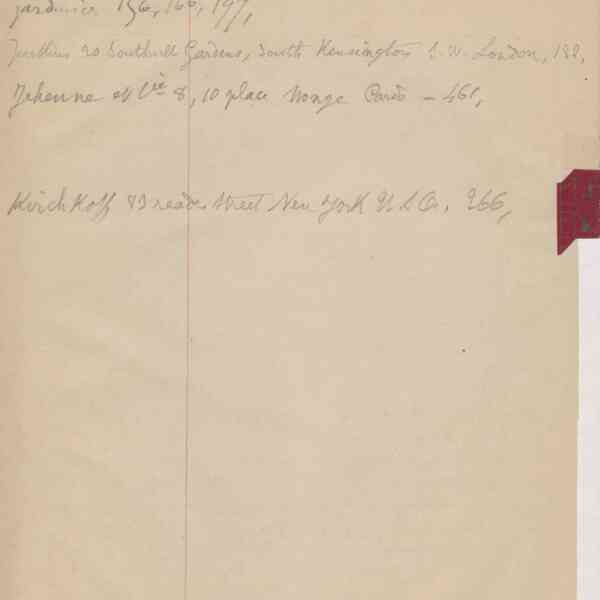 Jardinier 156, 166, 197,
Jenkins 20 Southwell Gardens, South Kensington S.W. London, 182,
Jehenne et Cie 8, 10 place Monge Paris – 461,
Kirchhoff 83 reade Street New York U.S.A. 266,